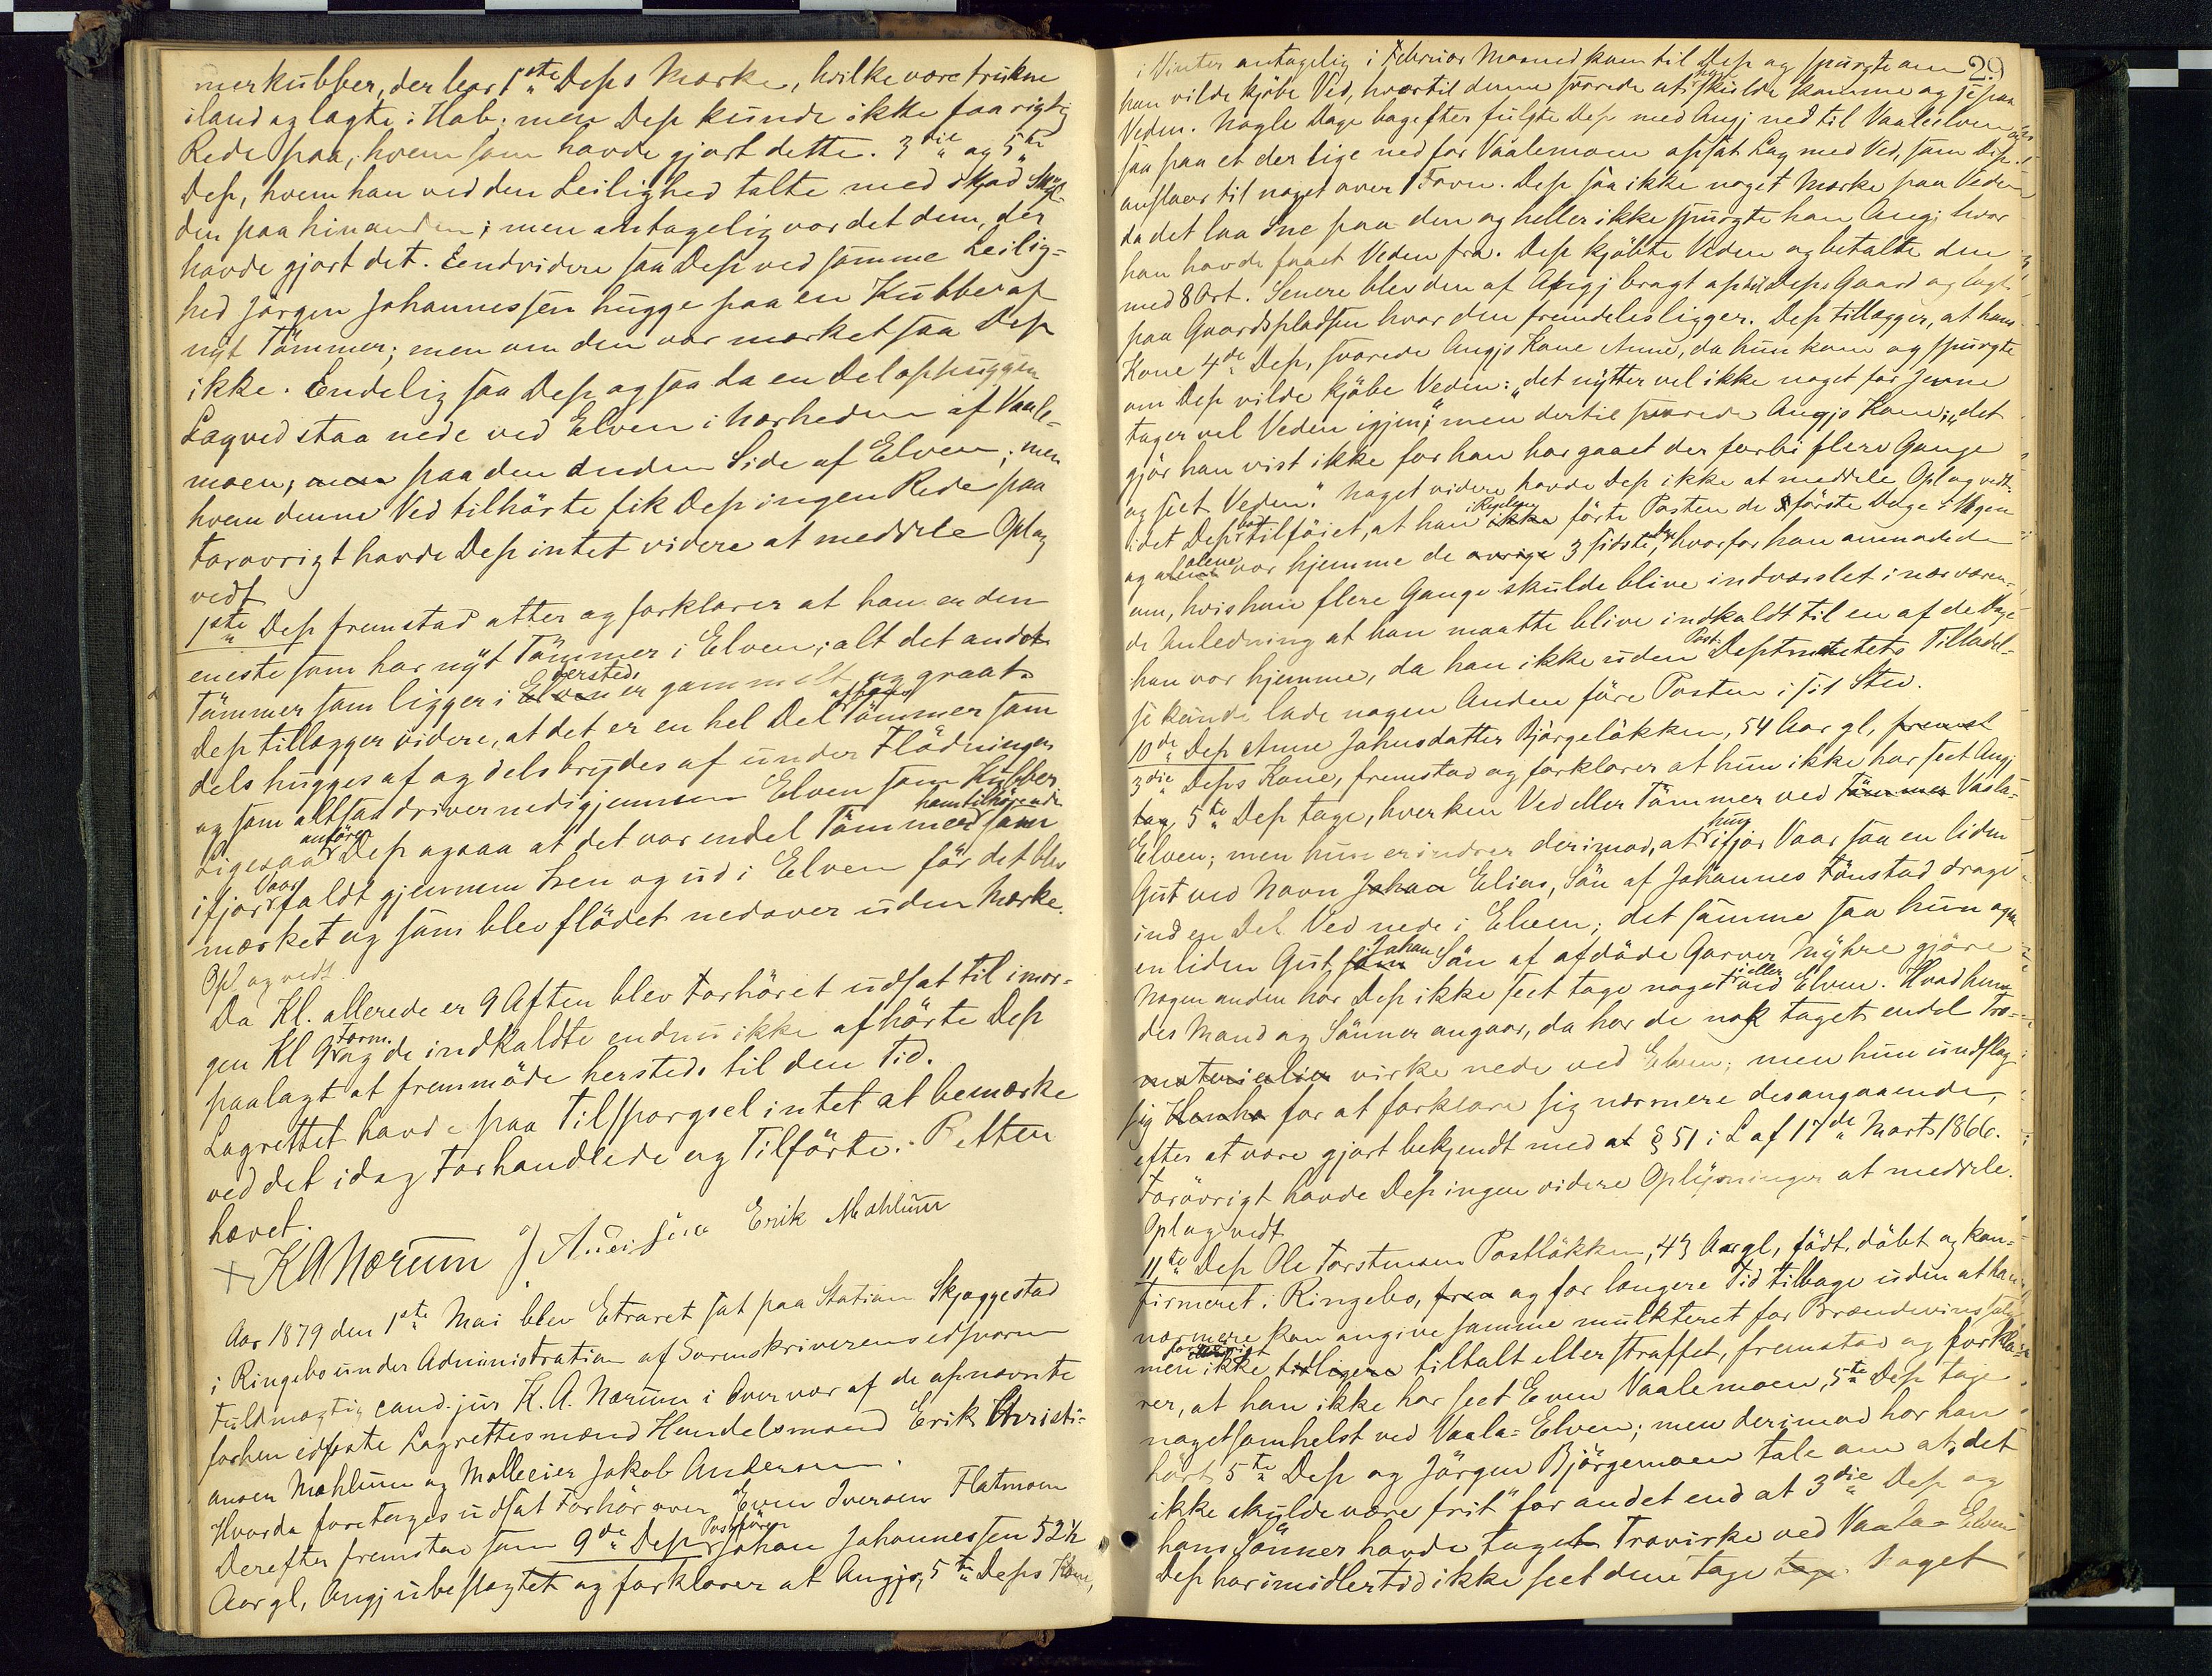 merkubber, der bar 1ste Deps Mærke, hvilke vare trukne
iland og lagte i Hob; men Dep kunde ikke faa rigtig
Rede paa, hvem som havde gjort dette. 3die og 5te
Dep, hvem han ved den Leilighed talte med skjød Skyl-
den paa hinanden; men antagelig var det dem, der
havde gjort det. Eendvidere saa Dep ved samme Leilig=
hed Jørgen Johannessen hugge paa en Kubbe af
nyt Tømmer; men om den var mærket saa Dep
ikke. Endelig saa Dep ogsaa da en Del ophuggen
Lagved staa nede ved Elven i Nærheden af Vaale-
moen, men paa den anden Side af Elven; men
hvem denne Ved tilhørte fik Dep ingen Rede paa
Forøvrigt havde Dep intet videre at meddele Opl og
vedt
1ste Dep fremstod atter og forklarer at han er den
eneste som har nyt Tømmer i Elven; alt det andet
Tømmer som ligger i Elven dersteds er gammelt og graat.
Dep tillægger videre, at det er en hel Del af hans Tømmer som
dels hugges af og dels brydes af under Flødningen
og som altsaa driver ned igjennem Elven som Kubber,
Ligesaa anfører Dep ogsaa at det var endel ham tilhørende Tømmer som
ifjor Vaar faldt gjennem Isen og ud i Elven før det blev
mærket og som blev flødet nedover uden Mærke.
Opl og vedt.
Da Kl. allerede er 9 Aften blev Forhøret udsat til imor=
gen Kl 9 Form. og de indkaldte endnu ikke afhørte Dep
paalagt at fremmøde hersteds til den Tid.
Lagrettet havde paa Tilspørgsel intet at bemærke
ved det idag Forhandlede og Tilførte. Retten
hævet.
K A Nærum J Andersen Erik Mæhlum
Aar 1879 den 1ste Mai blev Extraret sat paa Station Skjæggestad
i Ringebo under Administration af Sorenskriverens edsvorne
Fuldmægtig cand. jur K. A. Nærum i Overvær af de opnævnte
forhen edfæste Lagrettesmænd Handelsmand Erik Christi=
ansen Mæhlum og Møllerier Jakob Andersen.
Hvorda foretages udsat Forhør over Even Iversen Flatmoen
Derefter fremstod som 9de Dep Postfører Johan Johannessen 52½
Aar gl, Angj ubeslægtet og forklarer at Angjs, 5te Deps Kone,
29
i Vinter antagelig i Februar Maaned kom til Dep og spurgte om
han vilde kjøbe Ved, hvortil denne svarede at han skulde komme og se paa
Veden. Nogle Dage bagefter fulgte Dep med Angj ned til Vaaleelven og
saa paa et der lige ned for Vaalemoen opsat Lag med Ved, som Dep
anslaar til noget over 1 Favn. Dep saa ikke noget Mærke paa Veden
da det laa Sne paa den og heller ikke spurgte han Angj hvor
han havde faaet Veden fra. Dep kjøbte Veden og betalte den
med 8 Ort. Senere blev den af Angj bragt op til Deps Gaard og lagt
paa Gaardspladsen hvor den fremdeles ligger. Dep tillægger, at hans
Kone 4de Dep, svarede Angjs Kone Anne, da hun kom og spurgte
om Dep vilde kjøbe Veden: „det nytter vel ikke noget for Jenne
tager vel Veden igjen;" men dertil svarede Angjs Kone: „det
gjør han vist ikke for han har gaaet der forbi flere Gange
og seet Veden." Noget videre havde Dep ikke at meddele Opl og vedt.
idet Dep bad tilføiet, at han ikke i Regelen førte Posten de 3 første Dage i Ugen
og alene var hjemme de øvrige 3 sidste, hvorfor han anmodede
om, hvis han flere Gange skulde blive indvarslet i nærværen-
de Anledning at han maatte blive indkaldt til en af de Dage
han var hjemme, da han ikke uden Post Deptmentets Tilladel-
se kunde lade nogen Anden føre Posten i sit Sted.
10de Dep Anne Johnsdatter Bjørgeløkken, 54 Aar gl, fremst
3die Deps Kone, fremstod og forklarer at hun ikke har seet Angj
tag, 5te Dep tage, hverken Ved eller Tømmer ved Tømmer Vaala=
Elven; men hun erindrer derimod, at hun ifjor Vaar saa en liden
Gut ved Navn Johan Elias, Søn af Johannes Tønstad drage
ind en Del Ved nede i Elven; det samme saa hun ogsaa
en liden Gut, som Johan Søn af afdøde Garver Myhre gjøre
Nogen anden har Dep ikke seet tage noget i eller ved Elven. Hvad hen-
des Mand og Sønner angaar, da har de nok taget endel Træ-
materialier virke nede ved Elven; men hun undslog
sig for at forklare sig nærmere desangaaende,
efter at være gjort bekjendt med at § 51 i L af 17de Marts 1866.
Forøvrigt havde Dep ingen videre Oplysninger at meddele.
Opl og vedt
11te Dep Ole Torstensen Postløkken, 43 Aar gl, født, døbt og kon=
firmeret i Ringebo, og for længere Tid tilbage uden at han
nærmere kan angive samme mulkteret for Brændevinssalg
men forøvrigt ikke tidligere tiltalt eller straffet, fremstod og forkla-
rer, at han ikke har seet Even Vaalemoen, 5te Dep tage
nogetsomhelst ved Vaala=Elven; men derimod har han
hørt 5te Dep og Jørgen Bjørgemoen tale om at „det
ikke skulde være frit" for andet end at 3die Dep og
hans Sønner havde taget Trævirke ved Vaala=Elven
Dep har imidlertid ikke seet dem tage tage. Noget